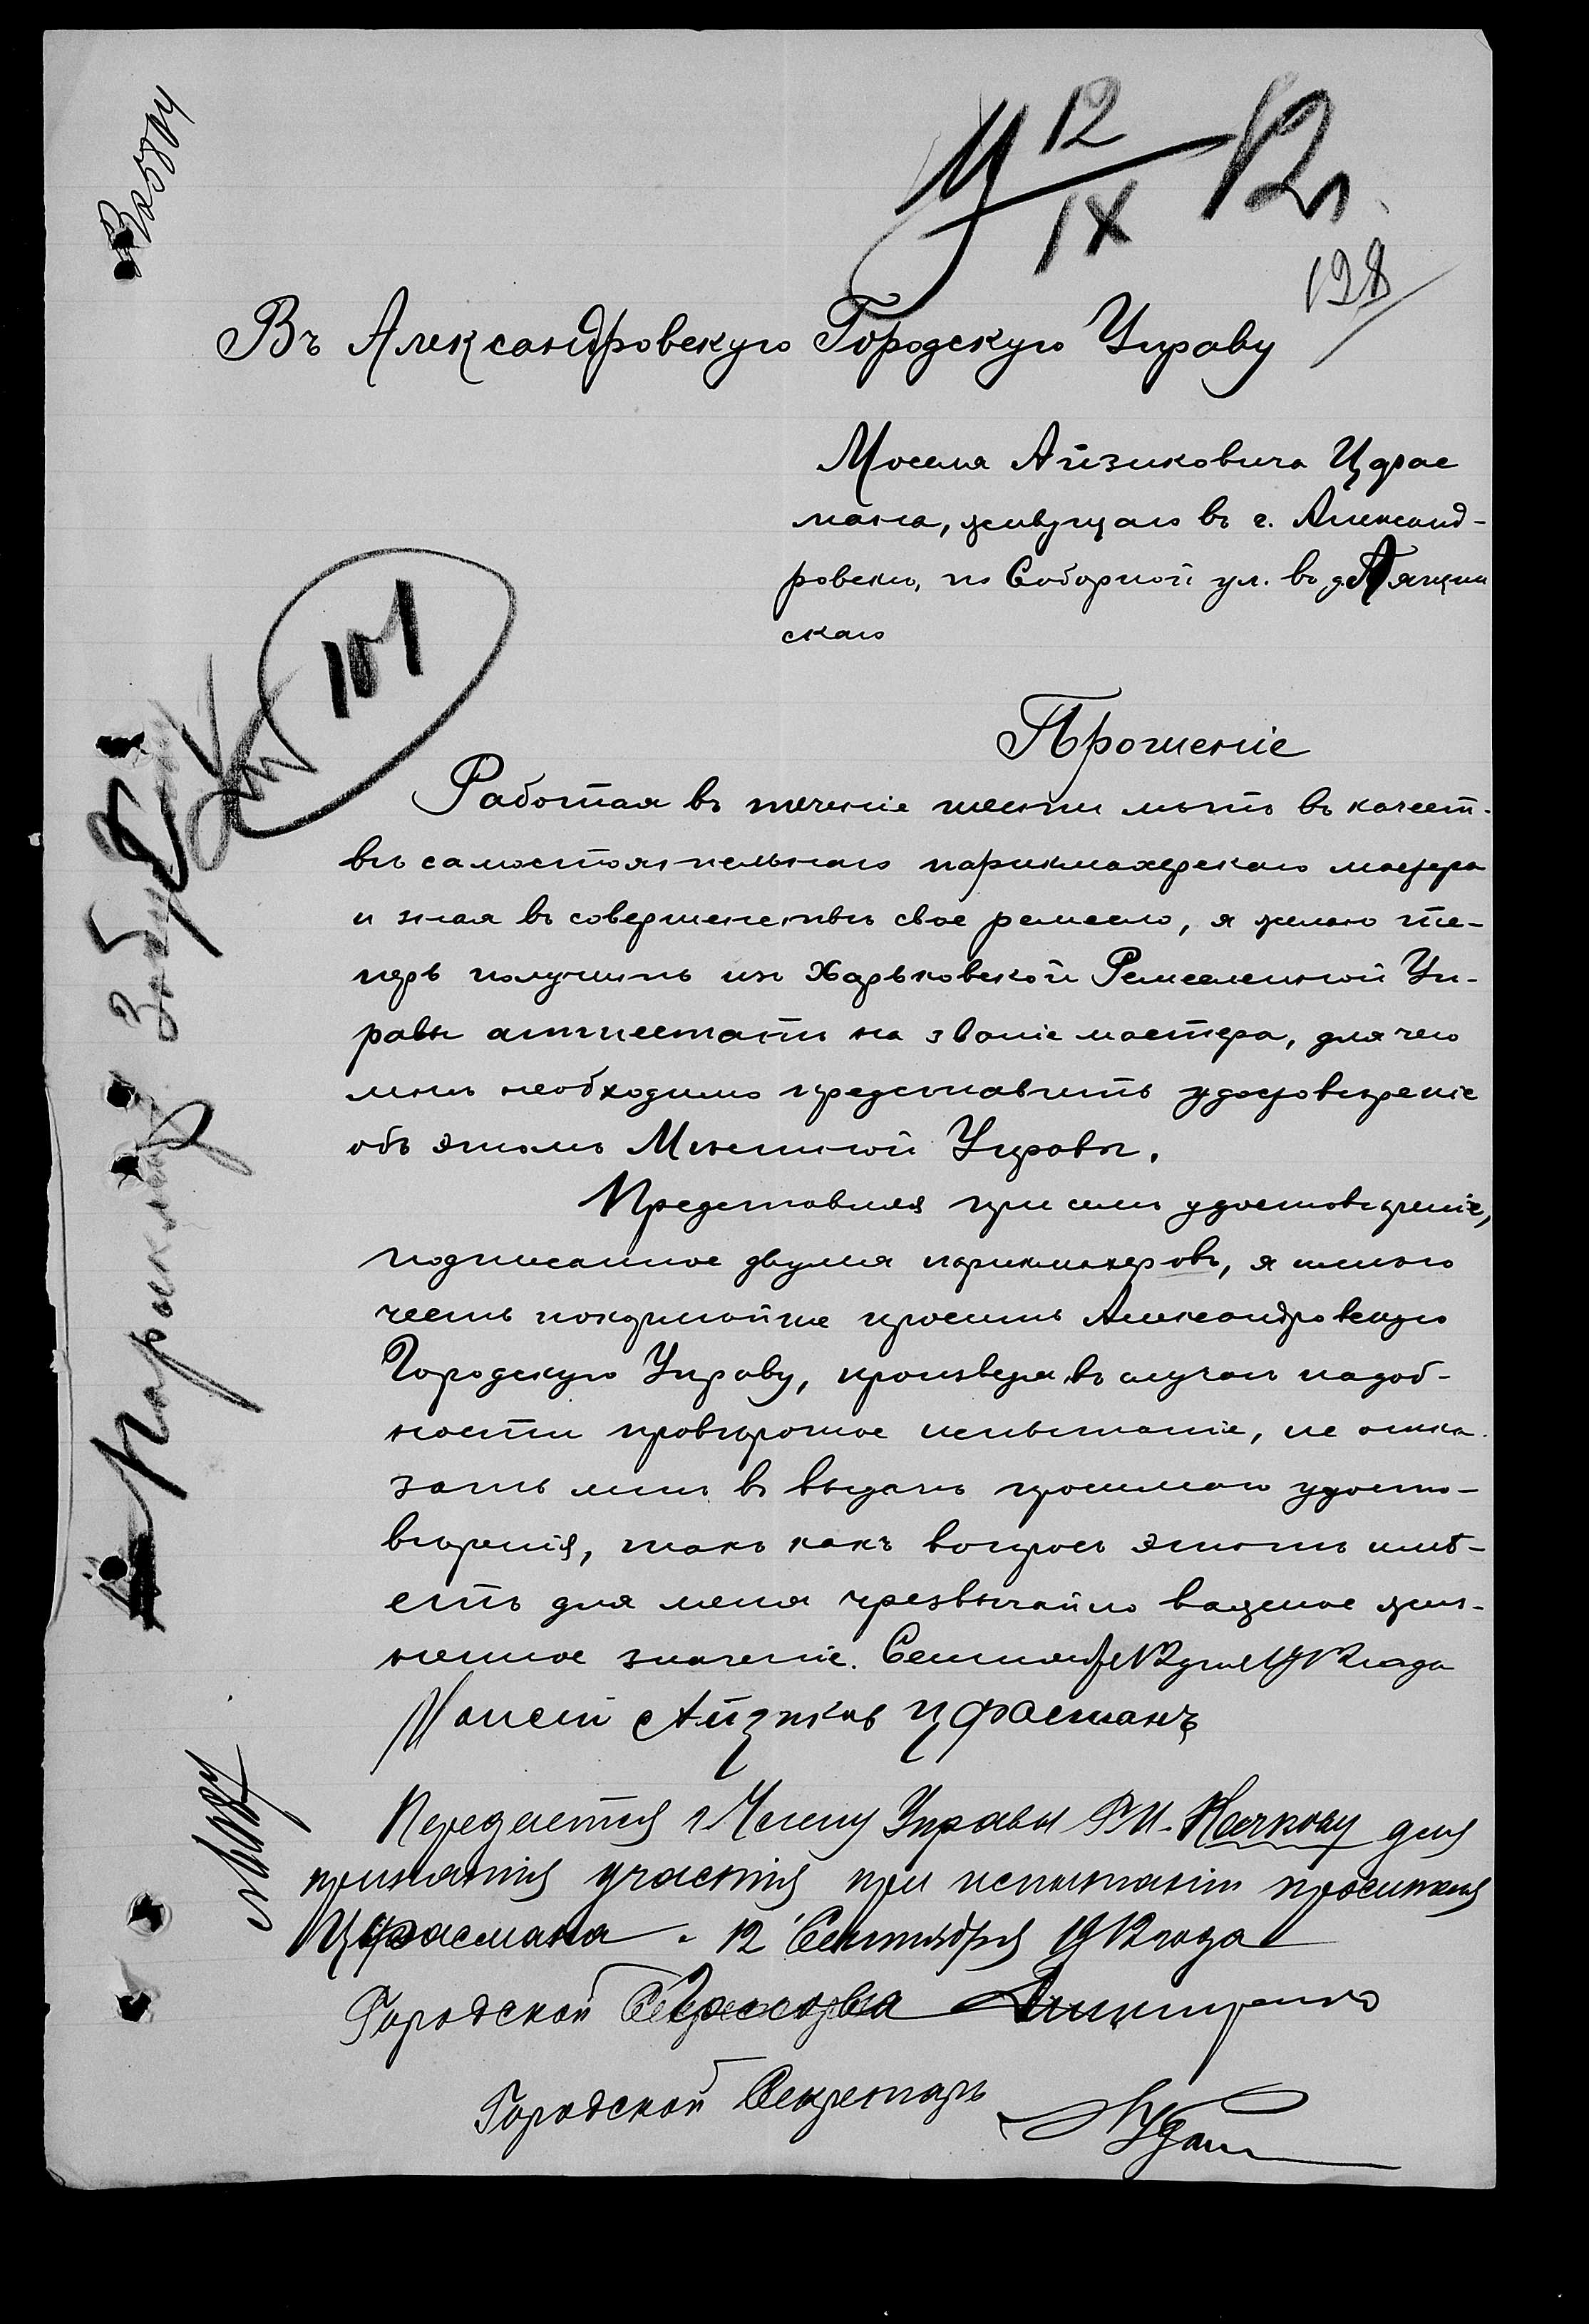 12
IX
12 г.
128
Въ Александровскую Городскую Управу
Моисея Айзиковича Цфас
мана, живущаго въ г. Александ-
ровскѣ, по Соборной ул. въ д.
скаго
101
Прошеніе
Работая въ теченіе шести лѣтъ въ качест-
вѣ самостоятельнаго парикмахерскаго мастера
и зная въ совершенствѣ свое ремесло, я желаю те-
перь получить изъ Харьковской Ремесленной Уп-
равы аттестатъ на званіе мастера, для чего
мнѣ необходимо представить удостовѣреніе
объ этомъ Мѣстной Управы.
Представляя при семъ удостовѣреніе,
подписанное двумя парикмахеровъ, я имѣю
честь покорнѣйше просить Александровскую
Городскую Управу, произведя, въ случаѣ надоб-
ности провѣрочное испытаніе, не отка-
зать мнѣ въ выдачѣ просимаго удосто-
вѣренія, такъ какъ вопросъ этотъ имѣ-
етъ для меня чрезвычайно важное жиз-
ненное значеніе. Сентября 12 дня 1912 года
Моисей Айзиковъ Цфасманъ
Передается г. Члену Управы для
принятія участія при испытаніи просителя
Цфасмана. 12 Сентября 1912 года
Городской
Городской Секретарь